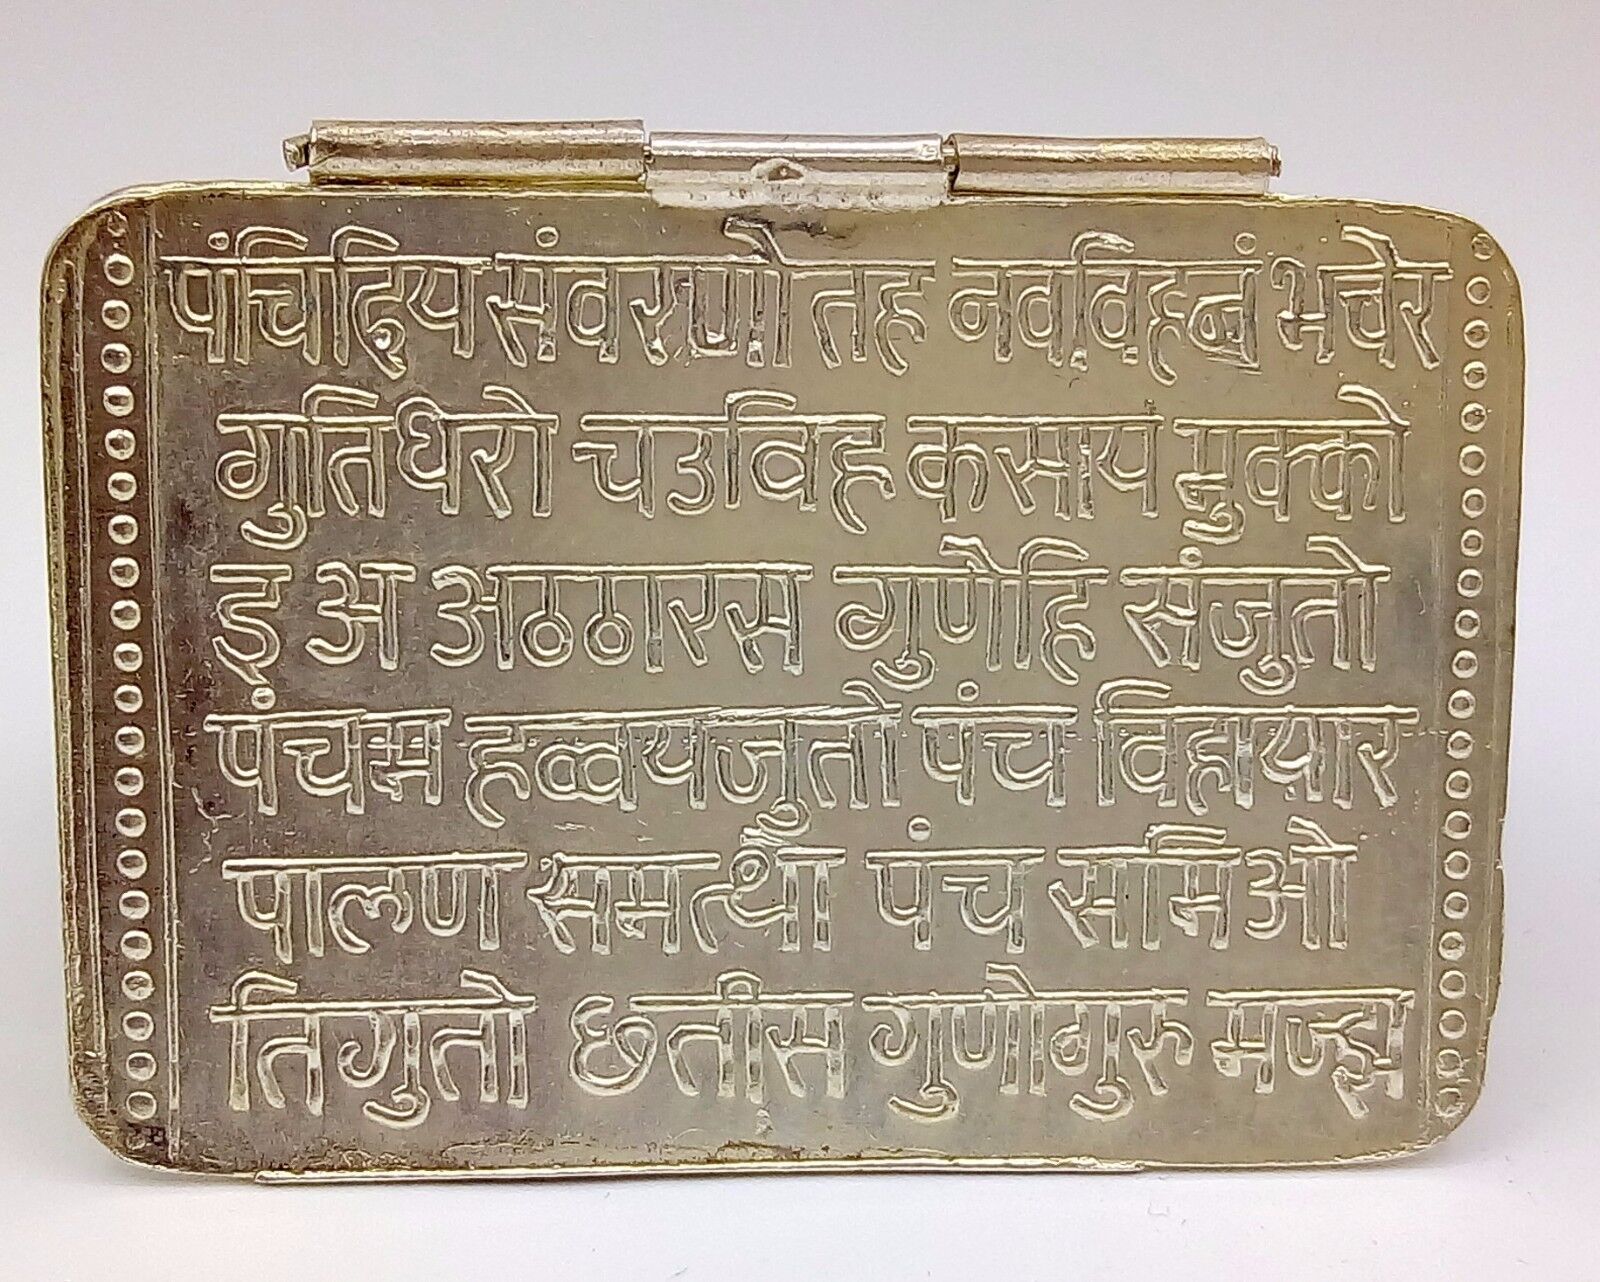 पंचिंदिय संवरणो तह नवविहन्नं भचेर
गुतिधरो चउविह कसाय मुक्को
इ अ अठठारस गुणेहि संजुतो
पंचम हव्वयजुतो पंच विहायार
पालण समत्थो पंच समिओ
तिगुतो छतीस गुणोगुरु मज्झ